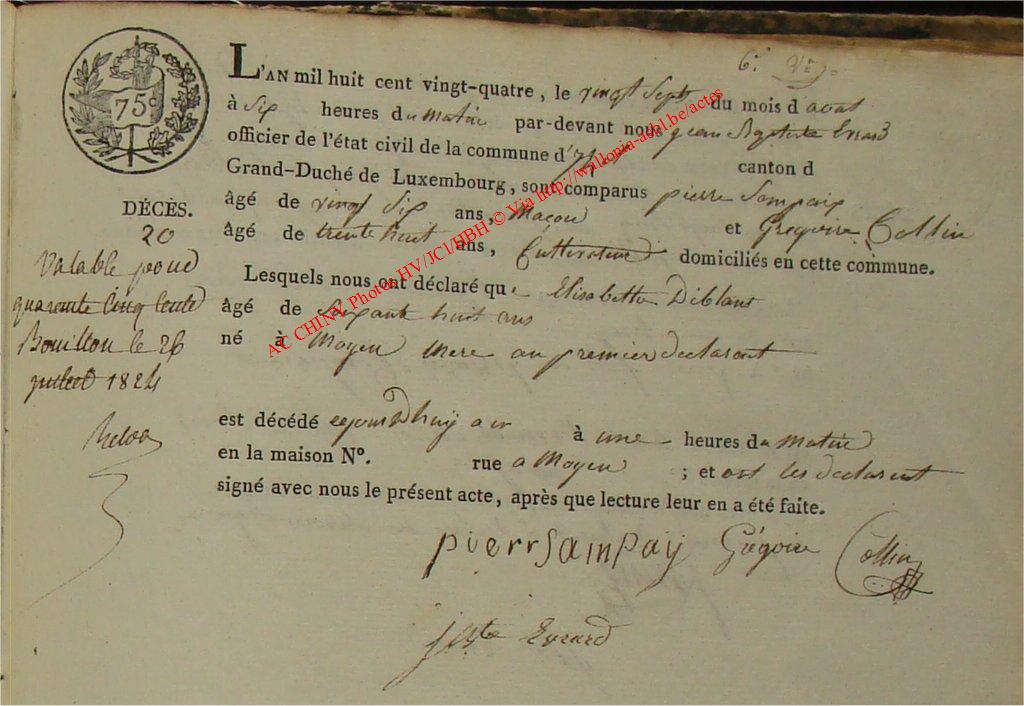 6.e
75c
L'AN mil huit cent vingt-quatre, le vingt Sept du mois d'aout
à Six heures du matin par-devant nous jean Baptiste Evrard
officier de l'état civil de la commune d'Iz canton d
Grand-Duché de Luxembourg, sont comparus pierre Sampaix
âgé de vingt Six ans, Maçon et Gregoire Collin
âgé de trente huit ans, Cultivateur domiciliés en cette commune.
Lesquels nous ont déclaré que Elisabette Diblans
âgé de Soixante huit ans
né à Moyen mere au premier declarant
est décédé cejourdhuy à une heures du matin
en la maison N°. rue a Moyen ; et ont les declarant
signé avec nous le présent acte, après que lecture leur en a été faite.
pierrSampaÿ Grégoire Collin
jBste Evrard
DÉCÈS.
20
Valable pour
quarante Cinq Cents
Bouillon le 26
juillet 1824
AC CHINY, Photos HV/JCl/HBH © Via http://wallonia-asbl.be/actes